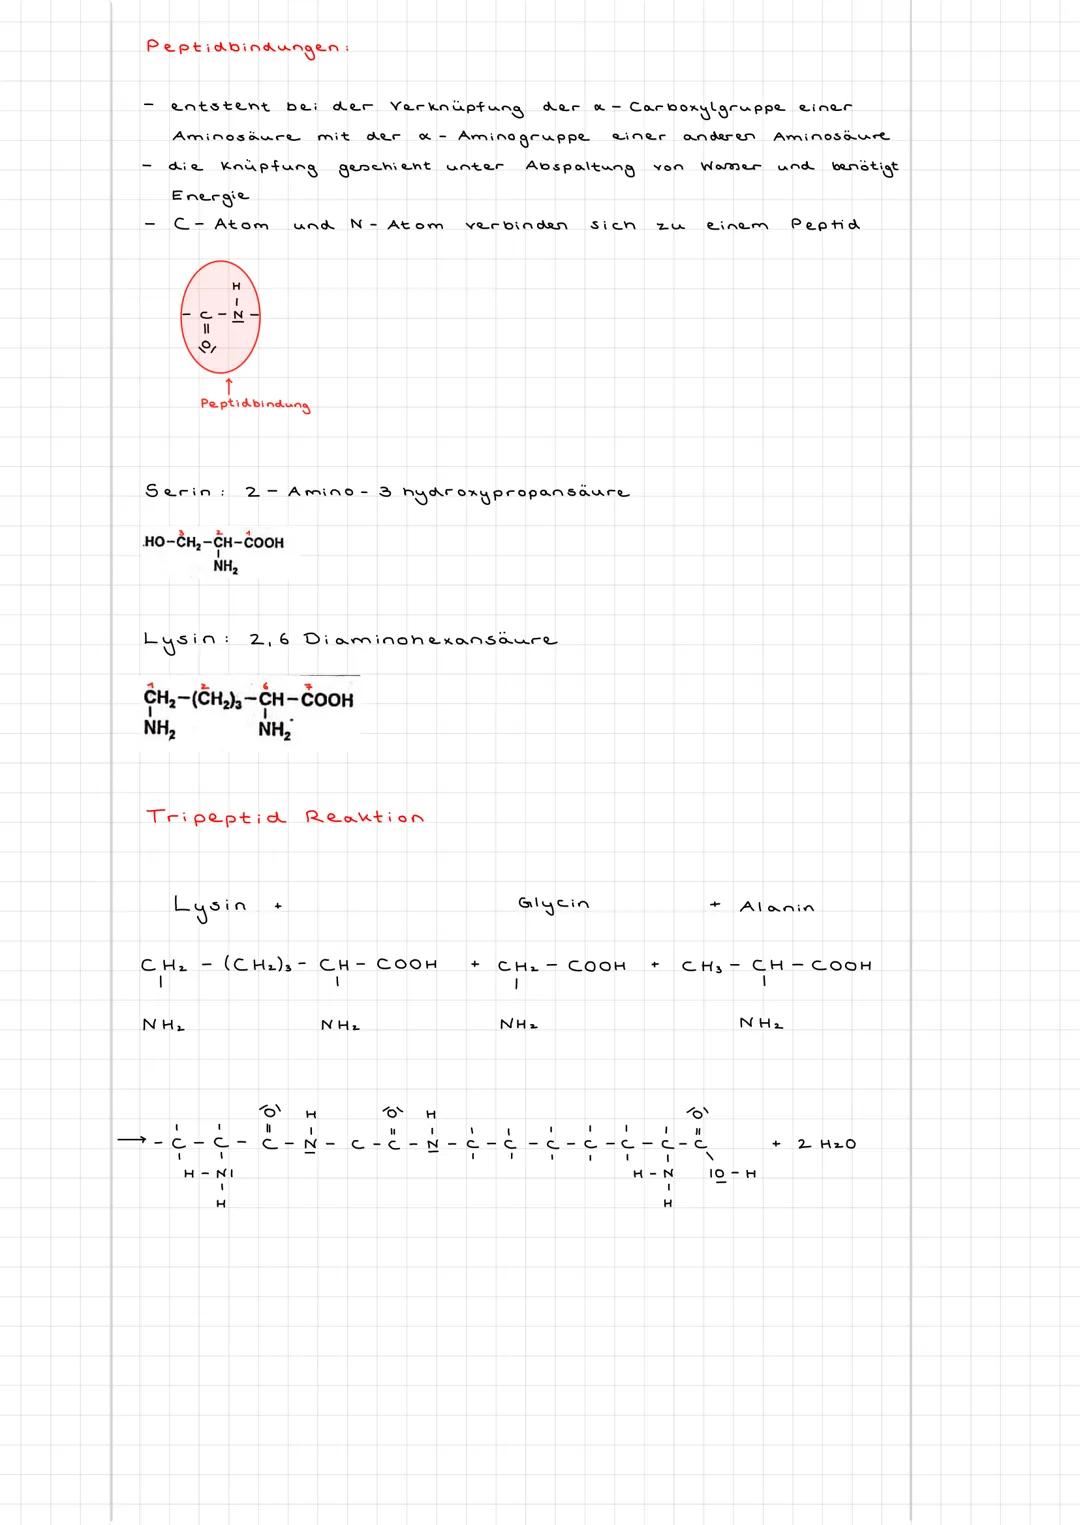 Peptidbindungen:
- entsteht bei der Verknüpfung der α - Carboxylgruppe einer
Aminosäure mit der α - Aminogruppe einer anderen Aminosäure
- die Knüpfung geschieht unter Abspaltung von Wasser und benötigt
Energie
- C - Atom und N - Atom verbinden sich zu einem Peptid
H
- C - N -
O
Peptidbindung
Serin: 2 - Amino - 3 hydroxypropansäure
3 2 1
HO-CH₂-CH-COOH
NH₂
Lysin: 2,6 Diaminohexansäure
1 2 6 7
CH₂-(CH₂)₃-CH-COOH
NH₂ NH₂
Tripeptid Reaktion
Lysin + Glycin + Alanin
CH₂ - (CH₂)₃ - CH - COOH + CH₂ - COOH + CH₃ - CH - COOH
NH₂ NH₂ NH₂ NH₂
O H O H O
→ - C - C - C - N - C - C - N - C - C - C - C - C - C - C + 2 H₂O
H - N H - N O - H
H H